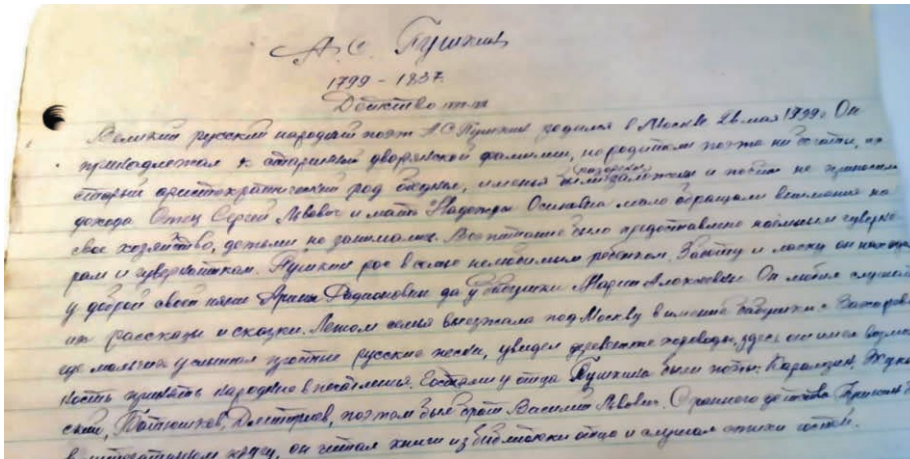 А.С. Пушкин
1799 - 1837
Детство
Великий русский народный поэт А.С.Пушкин родился в Москве 26 мая 1799г. Он
принадлежал к старинной дворянской фамилии, но родители поэта не богаты, их
старый аристократический род беднел, именья были разорены и почти не приносили
дохода. Отец Сергей Львович и мать Надежда Осиповна мало обращали внимания на
свое хозяйство, детьми не занимались. Воспитание было предоставлено наёмным гувернё-
рам и гувернанткам. Пушкин рос в семье нелюбимым ребенком. Заботу и ласку он
у доброй своей няни Арины Родионовны да у бабушки Марии Алексеевны. Он любил слушать
их рассказы и сказки. Летом семья выезжала под Москву в имение бабушки - Захарово
где мальчик услышал русские песни, увидел деревенские хороводы, здесь он имел возмож
ность принять народные. Гостями у отца Пушкина были поэты: Карамзин, Жуков
ский, Батюшков, Дмитриев, поэтом был брат Василий Львович. С раннего детства Пушкин
в литературном кругу, он читал книги из библиотеки отца и слушал стихи гостей.